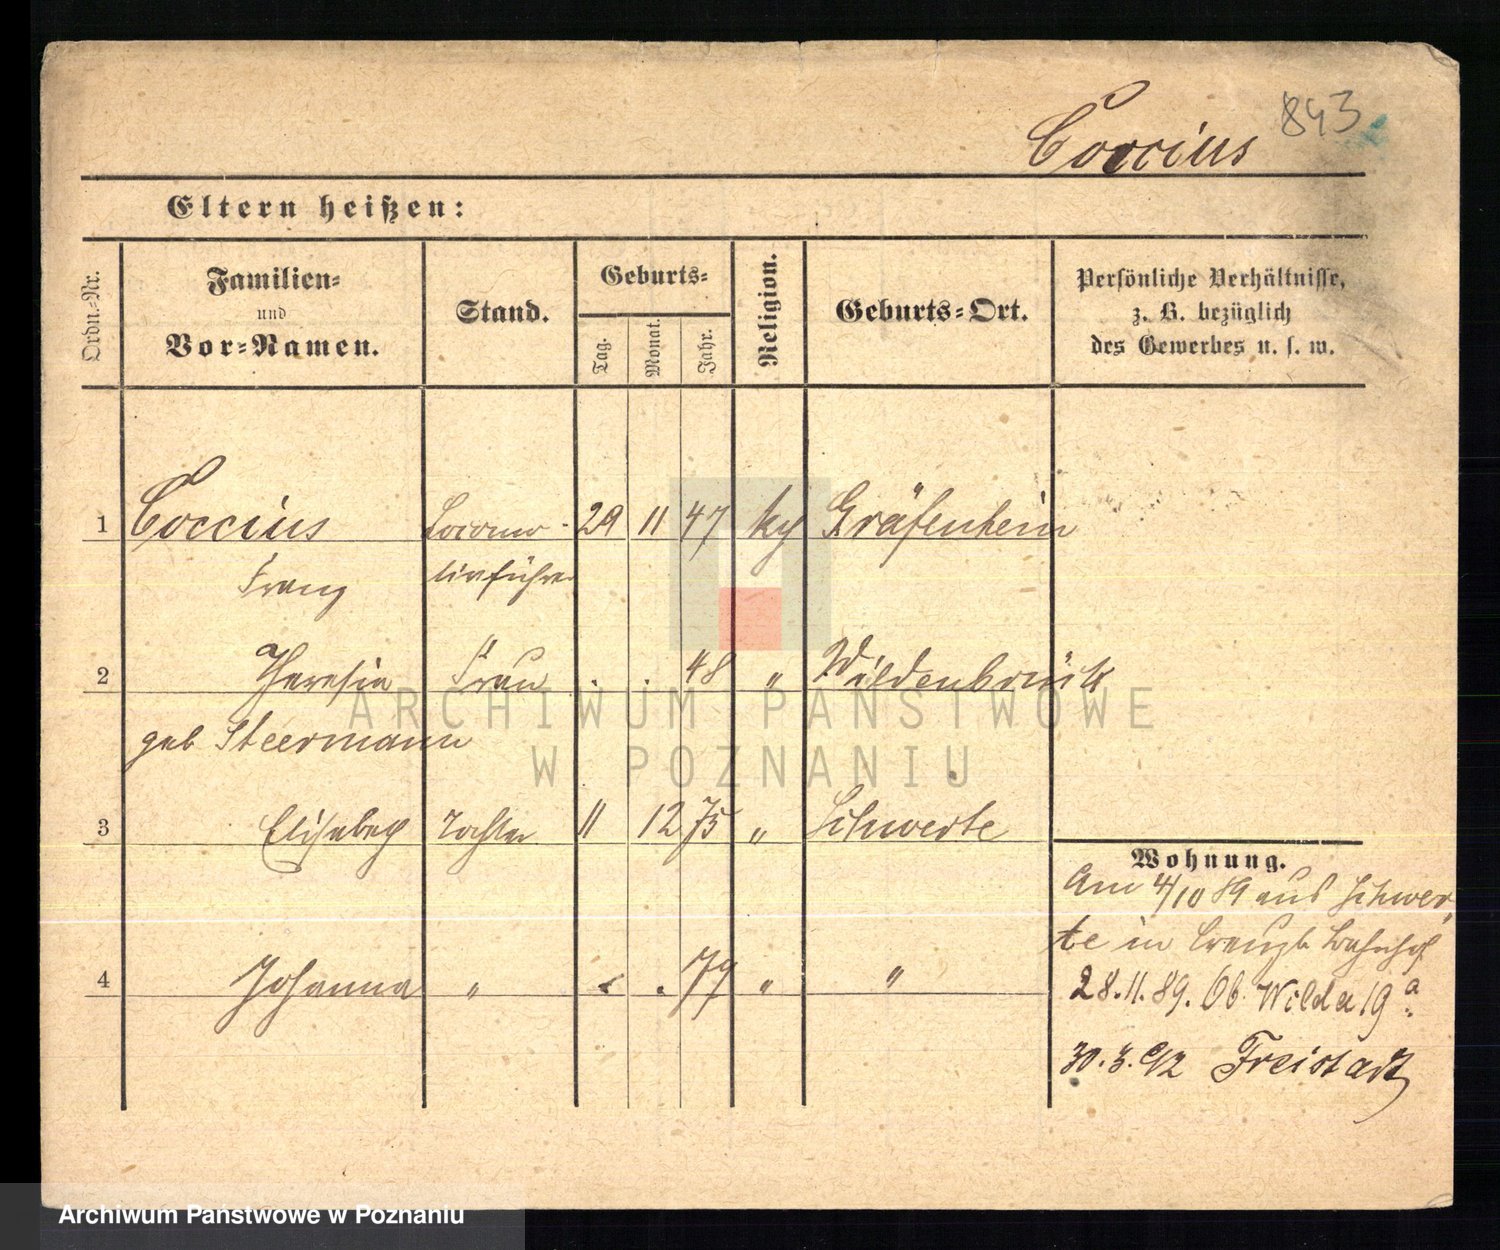 Coccius 843
Eltern heißen:
Ordn.-Nr.
Familien-
und
Vor-Namen.
Stand.
Geburts-
Tag.
Monat.
Jahr.
Religion.
Geburts-Ort.
Persönliche Verhältnisse,
z. B. bezüglich
des Gewerbes u. s. w.
1 Coccius Locomo- 29 11 47 Gräfenhein
Franz tivführer
2 Theresia Frau . . 48 " Wildenbruch
geb Steermann
3 Elisabeth Tochter 11 12 75 " Schwerte
4 Johanna " . . 79 " "
Wohnung.
Am 4/10 89 aus Schwer
te in Bahnhof
28.11.89. Ob Wilda 19 a
30.3.92 Freistadt
ARCHIWUM PAŃSTWOWE
W POZNANIU
Archiwum Państwowe w Poznaniu